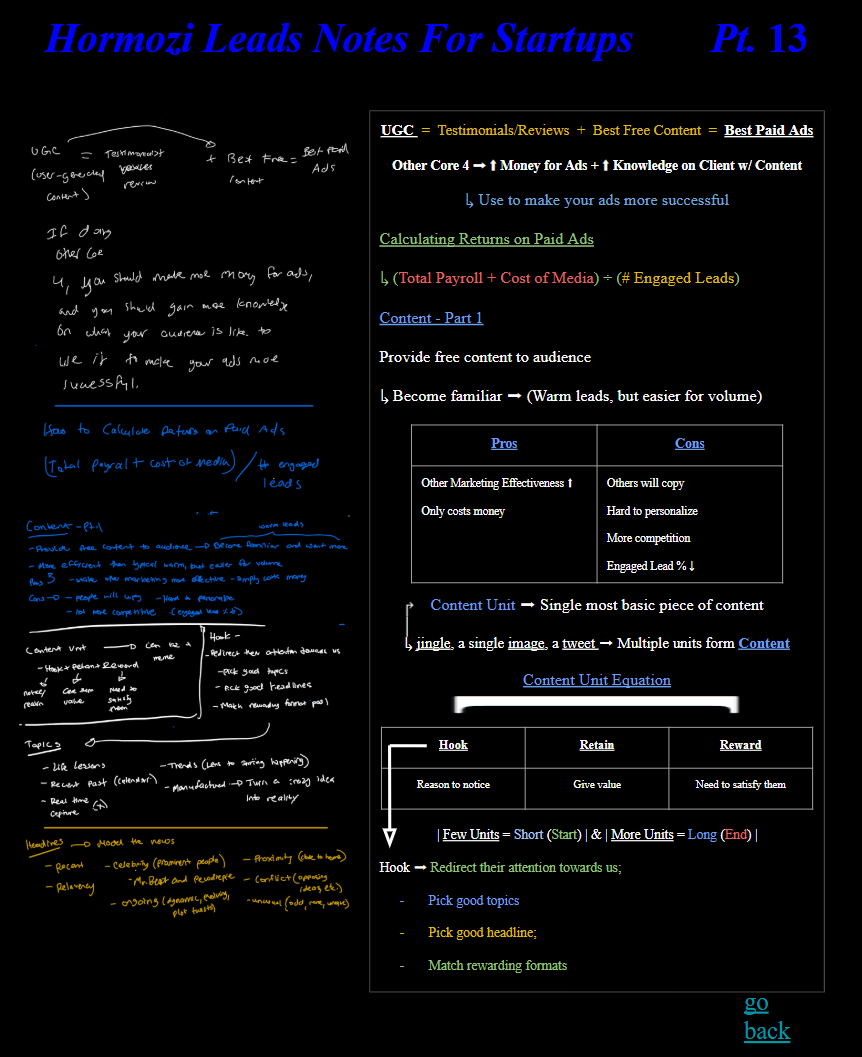 Hormozi Leads Notes For Startups Pt. 13
UGC = Testimonials/Reviews + Best Free = Best Paid Ads
(User-generated content) Content
If doing
other Core
4, you should make more money for ads,
and you should gain more knowledge
on what your audience is like to
use it to make your ads more
successful.
How to Calculate Returns on Paid Ads
(Total Payroll + Cost of Media) / # engaged
leads
Content - Pt.1
warm leads
- Provide free content to audience → Become familiar and want more
- More efficient than typical warm, but easier for volume
Pros - make other marketing more effective - simply costs money
Cons → - people will copy - Hard to personalize
- lot more competitive (engaged lead % ↓)
Content Unit → Can be a
meme
- Hook + Retain + Reward
notice/ Give them need to
reason value satisfy
them
Hook -
- Redirect their attention towards us
- Pick good topics
- Pick good headlines
- Match rewarding format
Topics
- Life Lessons
- Recent Past (Calendar)
- Real time
capture
- Trends (Lens to something happening)
- Manufactured → Turn a crazy idea
into reality
Headlines → Model the news
- Recent
- Relevancy
- Celebrity (prominent people)
Mr. Beast and Pewdiepie
- ongoing (dynamic, evolving,
plot twists)
- Proximity (close to home)
- Conflict (opposing
ideas, etc.)
- unusual (odd, rare, unique)
UGC = Testimonials/Reviews + Best Free Content = Best Paid Ads
Other Core 4 → ↑ Money for Ads + ↑ Knowledge on Client w/ Content
↳ Use to make your ads more successful
Calculating Returns on Paid Ads
↳ (Total Payroll + Cost of Media) ÷ (# Engaged Leads)
Content - Part 1
Provide free content to audience
↳ Become familiar → (Warm leads, but easier for volume)
Pros Cons
Other Marketing Effectiveness ↑
Only costs money
Others will copy
Hard to personalize
More competition
Engaged Lead % ↓
Content Unit → Single most basic piece of content
↳ jingle, a single image, a tweet → Multiple units form Content
Content Unit Equation
Hook Retain Reward
Reason to notice Give value Need to satisfy them
| Few Units = Short (Start) | & | More Units = Long (End) |
Hook → Redirect their attention towards us;
- Pick good topics
- Pick good headline;
- Match rewarding formats
go
back